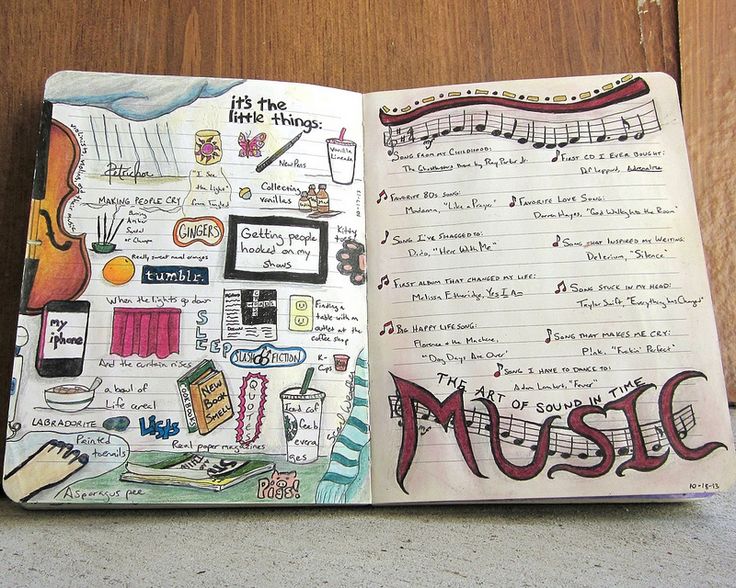 it's the
little things:
Petrichor
"I See
the Light"
from Tangled
New Pens
Vanilla
Lineade
MAKING PEOPLE CRY
Collecting
vanillas
10-17-13
Burning
Amber
Sandal
or Champa
GINGERS
Getting people
hooked on my
shows
Kitty
toes
Really sweet naval oranges
tumblr.
When the lights go down
my
iphone
SLEEP
Finding a
table with an
outlet at the
coffee shop
And the curtain rises
SLASH FICTION
K-
Cups
a bowl of
Life cereal
NEW
BOOK
SMELL
QUOTES
Iced cof
fee b
evera
ges
LABRADORITE
LISTS
Painted
toenails
Real paper magazines
Asparagus pee
Pigs!
SONG FROM MY CHILDHOOD:
The Ghostbusters theme by Ray Parker Jr.
FIRST CD I EVER BOUGHT:
Def Leppard, Adrenalize
FAVORITE 80s SONG:
Madonna, "Like a Prayer"
FAVORITE LOVE SONG:
Darren Hayes, "God Walking Into the Room"
SONG I'VE SHAGGED TO:
Dido, "Here With Me"
SONG THAT INSPIRED MY WRITING:
Delerium, "Silence"
FIRST ALBUM THAT CHANGED MY LIFE:
Melissa Etheridge, Yes I Am
SONG STUCK IN MY HEAD:
Taylor Swift, "Everything has Changed"
BIG HAPPY LIFE SONG:
Florence & the Machine,
"Dog Days Are Over"
SONG THAT MAKES ME CRY:
P!nk, "Fuckin' Perfect"
SONG I HAVE TO DANCE TO:
Adam Lambert, "Fever"
THE ART OF SOUND IN TIME
MUSIC
10-18-13